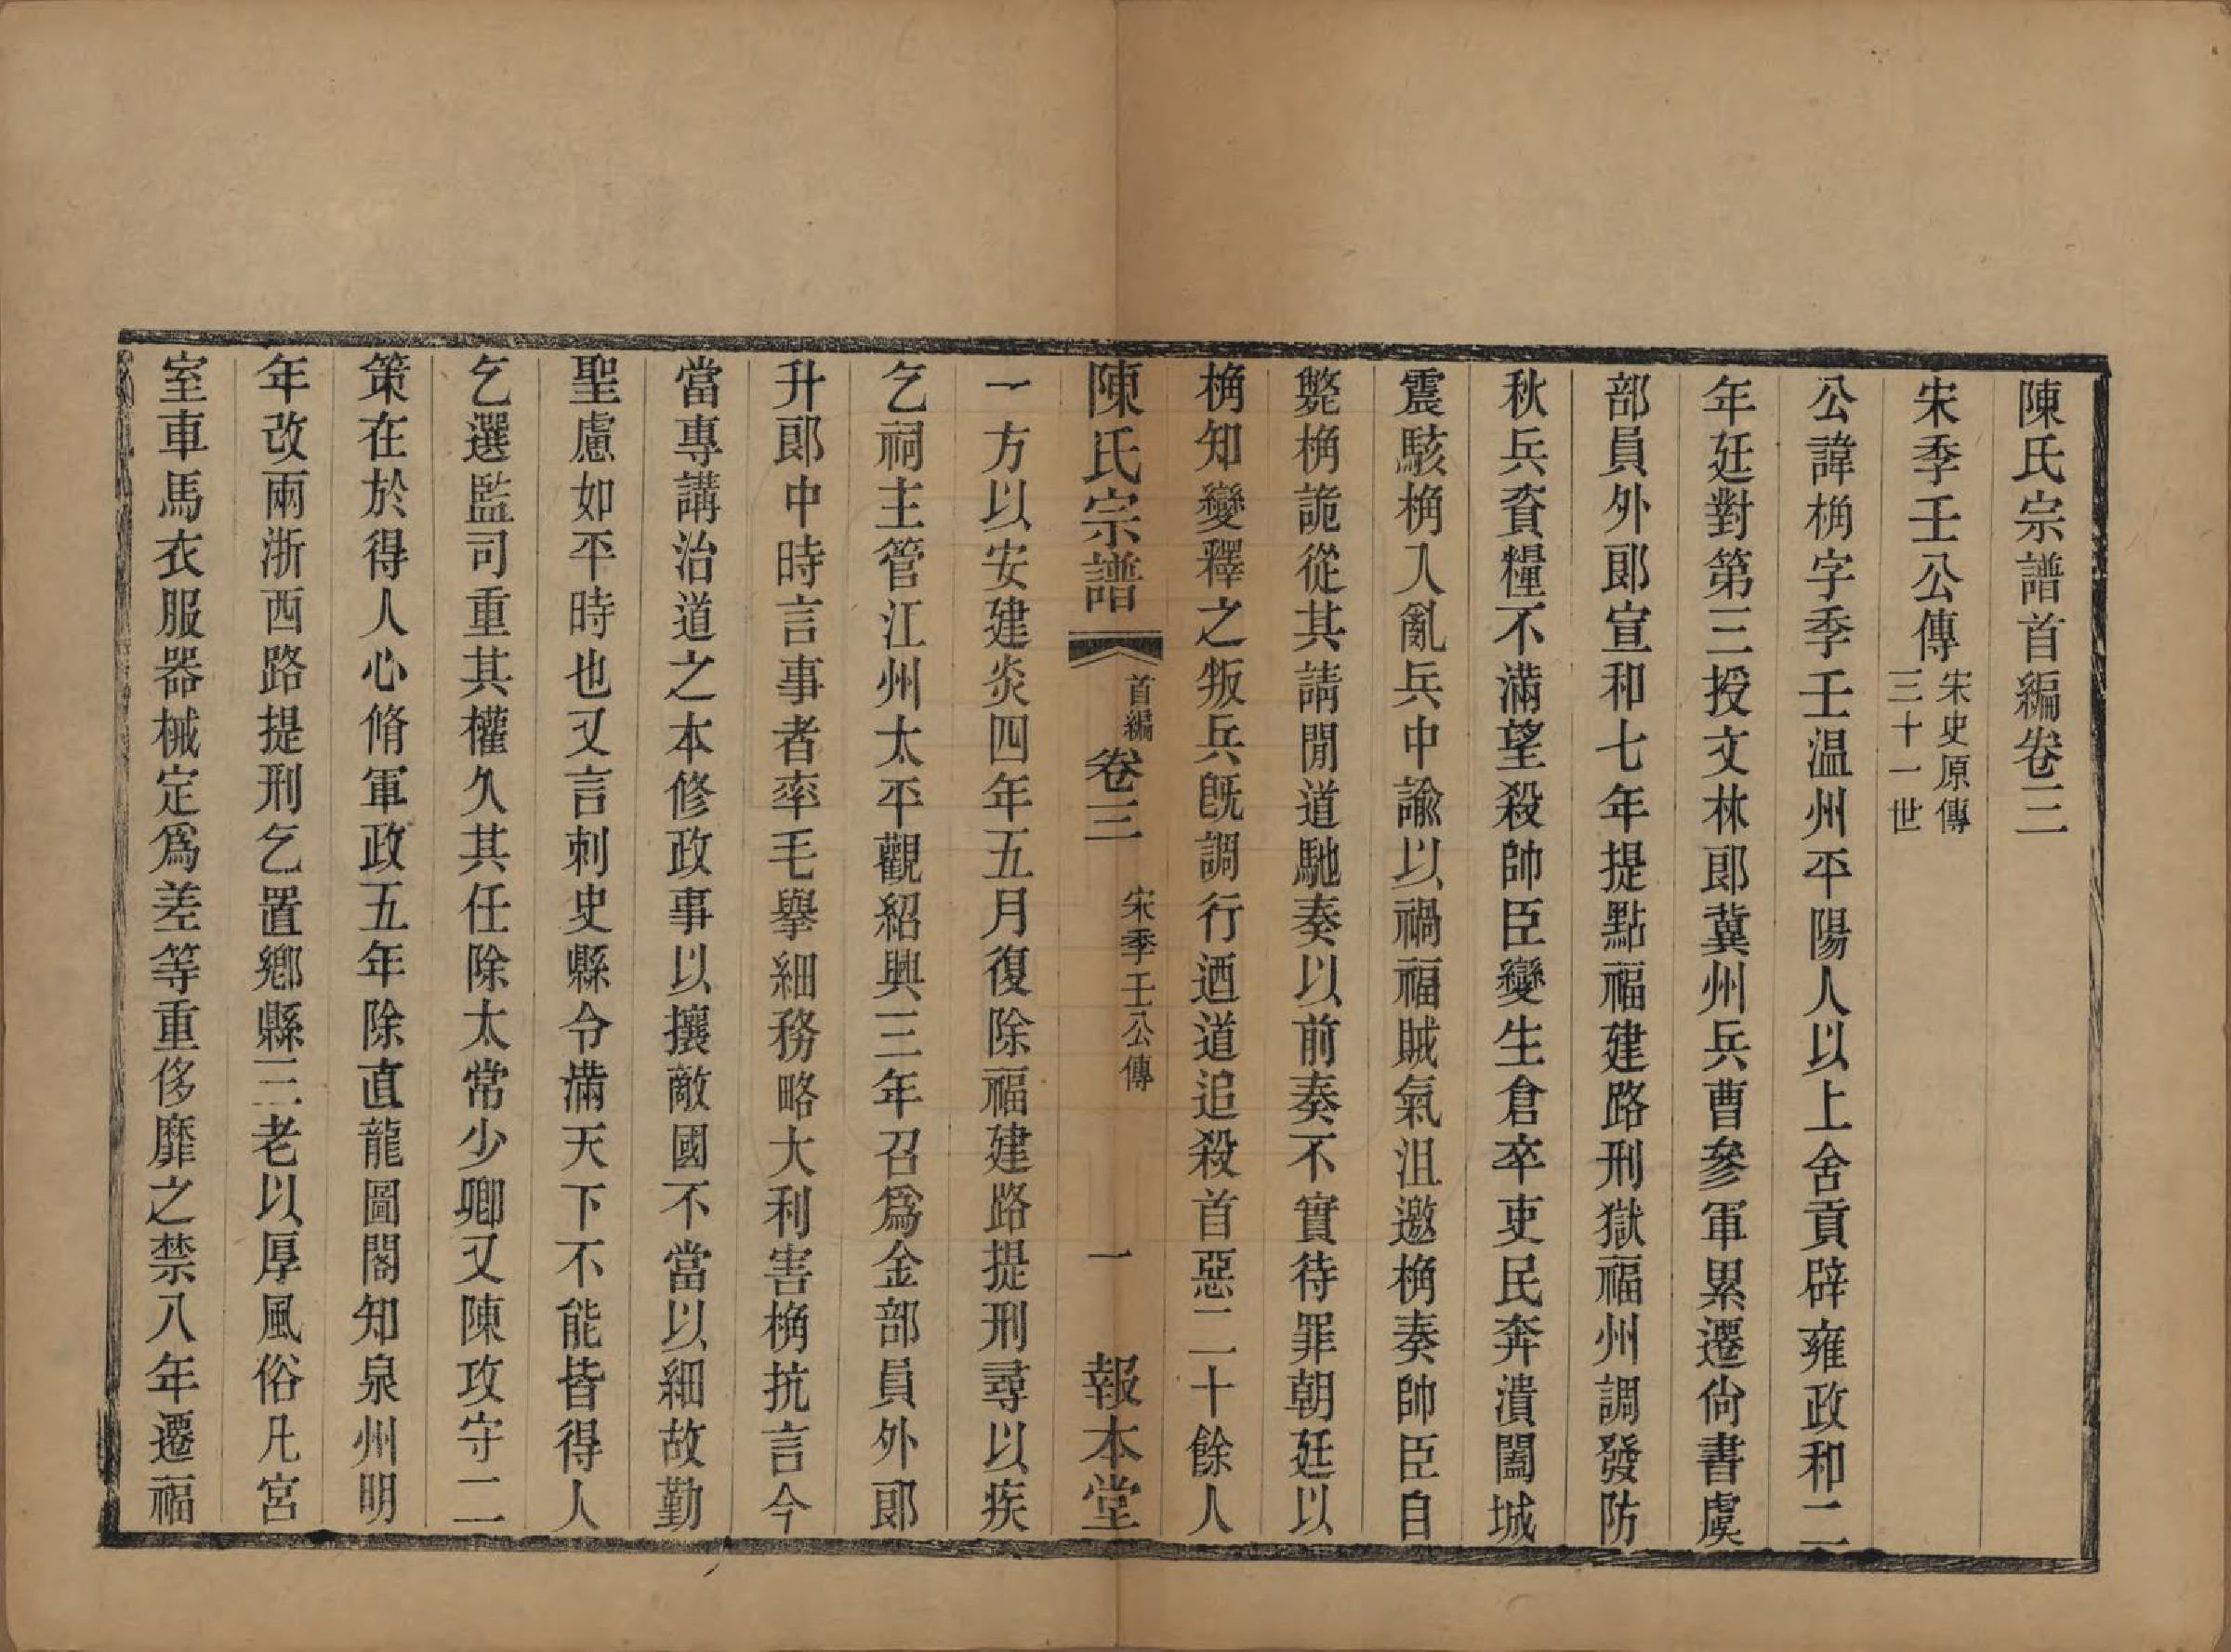 陳氏宗譜首編卷三
宋季壬公傳宋史原傳三十一世
公諱桷字季壬温州平陽人以上舍貢辟雍政和二
年廷對第三授文林郎冀州兵曹參軍累遷尙書虞
部員外郎宣和七年提點福建路刑獄福州調發防
秋兵資糧不滿望殺帥臣變生倉卒吏民奔潰闔城
震駭桷入亂兵中諭以禍福賊氣沮邀桷奏帥臣自
斃桷詭從其請閒道馳奏以前奏不實待罪朝廷以
桷知變釋之叛兵旣調行迺道追殺首惡二十餘人
陳氏宗譜 首編 卷三 宋季壬公傳 一 報本堂
一方以安建炎四年五月復除福建路提刑尋以疾
乞祠主管江州太平觀紹興三年召爲金部員外郎
升郎中時言事者率毛擧細務略大利害桷抗言今
當專講治道之本修政事以攘敵國不當以細故勤
聖慮如平時也又言刺史縣令滿天下不能皆得人
乞選監司重其權久其任除太常少卿又陳攻守二
策在於得人心脩軍政五年除直龍圖閣知泉州明
年改兩浙西路提刑乞置鄕縣三老以厚風俗凡宮
室車馬衣服器械定爲差等重侈靡之禁八年遷福